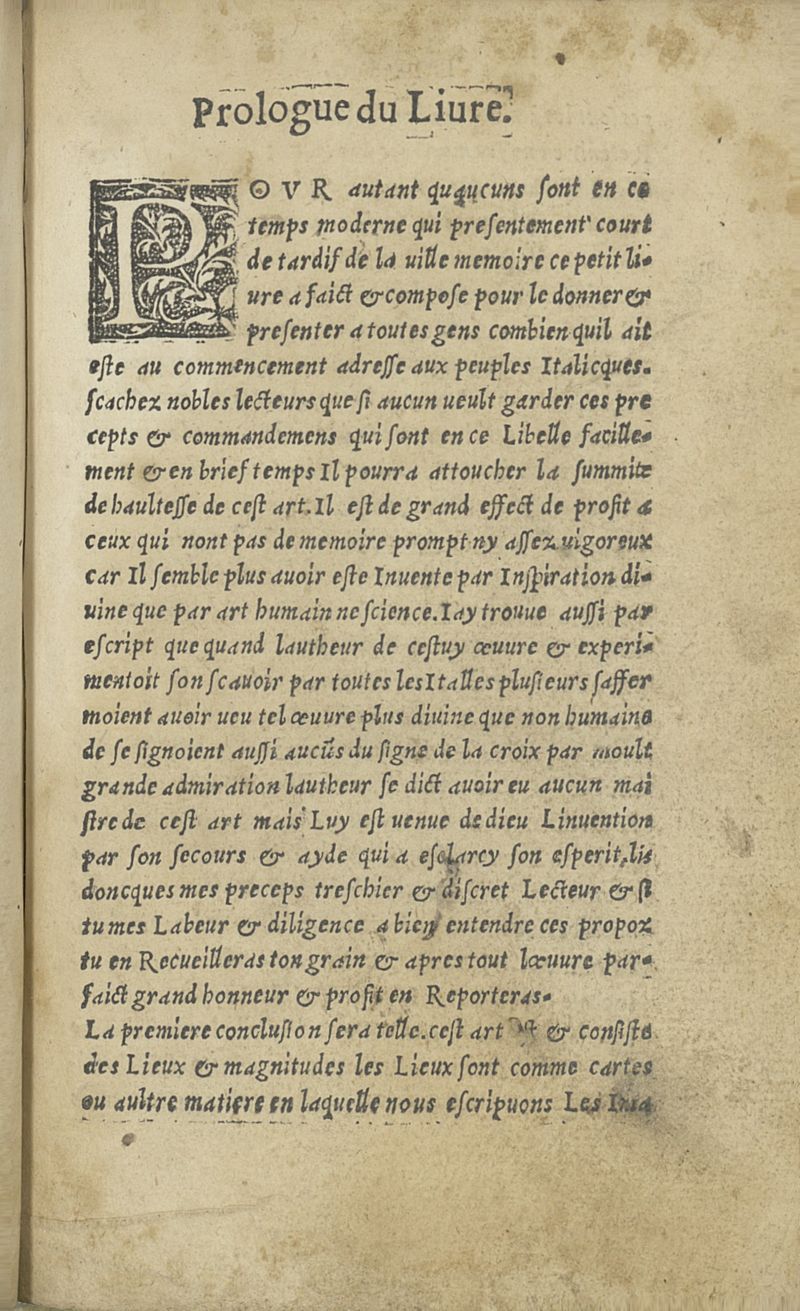 Prologue du Liure.
POVR autant quaucuns ſont en ce
temps moderne qui preſentement court
de tardif de la uille memoire ce petit li-
ure a faict & compoſe pour le donner &
preſenter a toutes gens combien quil ait
eſte au commencement adreſſe aux peuples Italicques.
ſcachez nobles lecteurs que ſi aucun ueult garder ces pre
cepts & commandemens qui ſont en ce Libelle facille-
ment & en brief temps Il pourra attoucher la ſummite
de haulteſſe de ceſt art. Il eſt de grand effect de profit a
ceux qui nont pas de memoire prompt ny aſſez uigoreux
car Il ſemble plus auoir eſte Inuente par Inſpiration di-
uine que par art humain ne ſcience. Iay trouue auſſi par
eſcript que quand lautheur de ceſtuy œuure & experi-
mentoit ſon ſcauoir par toutes les Italles pluſieurs ſaffer
moient auoir ueu tel œuure plus diuine que non humaine
de ſe ſignoient auſſi aucũs du ſigne de la croix par moult
grande admiration lautheur ſe dict auoir eu aucun mai
ſtre de ceſt art mais Luy eſt uenue de dieu Linuention
par ſon ſecours & ayde qui a eſclarcy ſon eſperit, lis
doncques mes preceps treſchier & diſcret Lecteur & ſi
tu mes Labeur & diligence a bien entendre ces propoz
tu en Recueilleras ton grain & apres tout lœuure par-
faict grand honneur & profit en Reporteras.
La premiere concluſion ſera telle. ceſt art & conſiſte
des Lieux & magnitudes les Lieux ſont comme cartes
ou aultre matiere en laquelle nous eſcripuons Les Ima